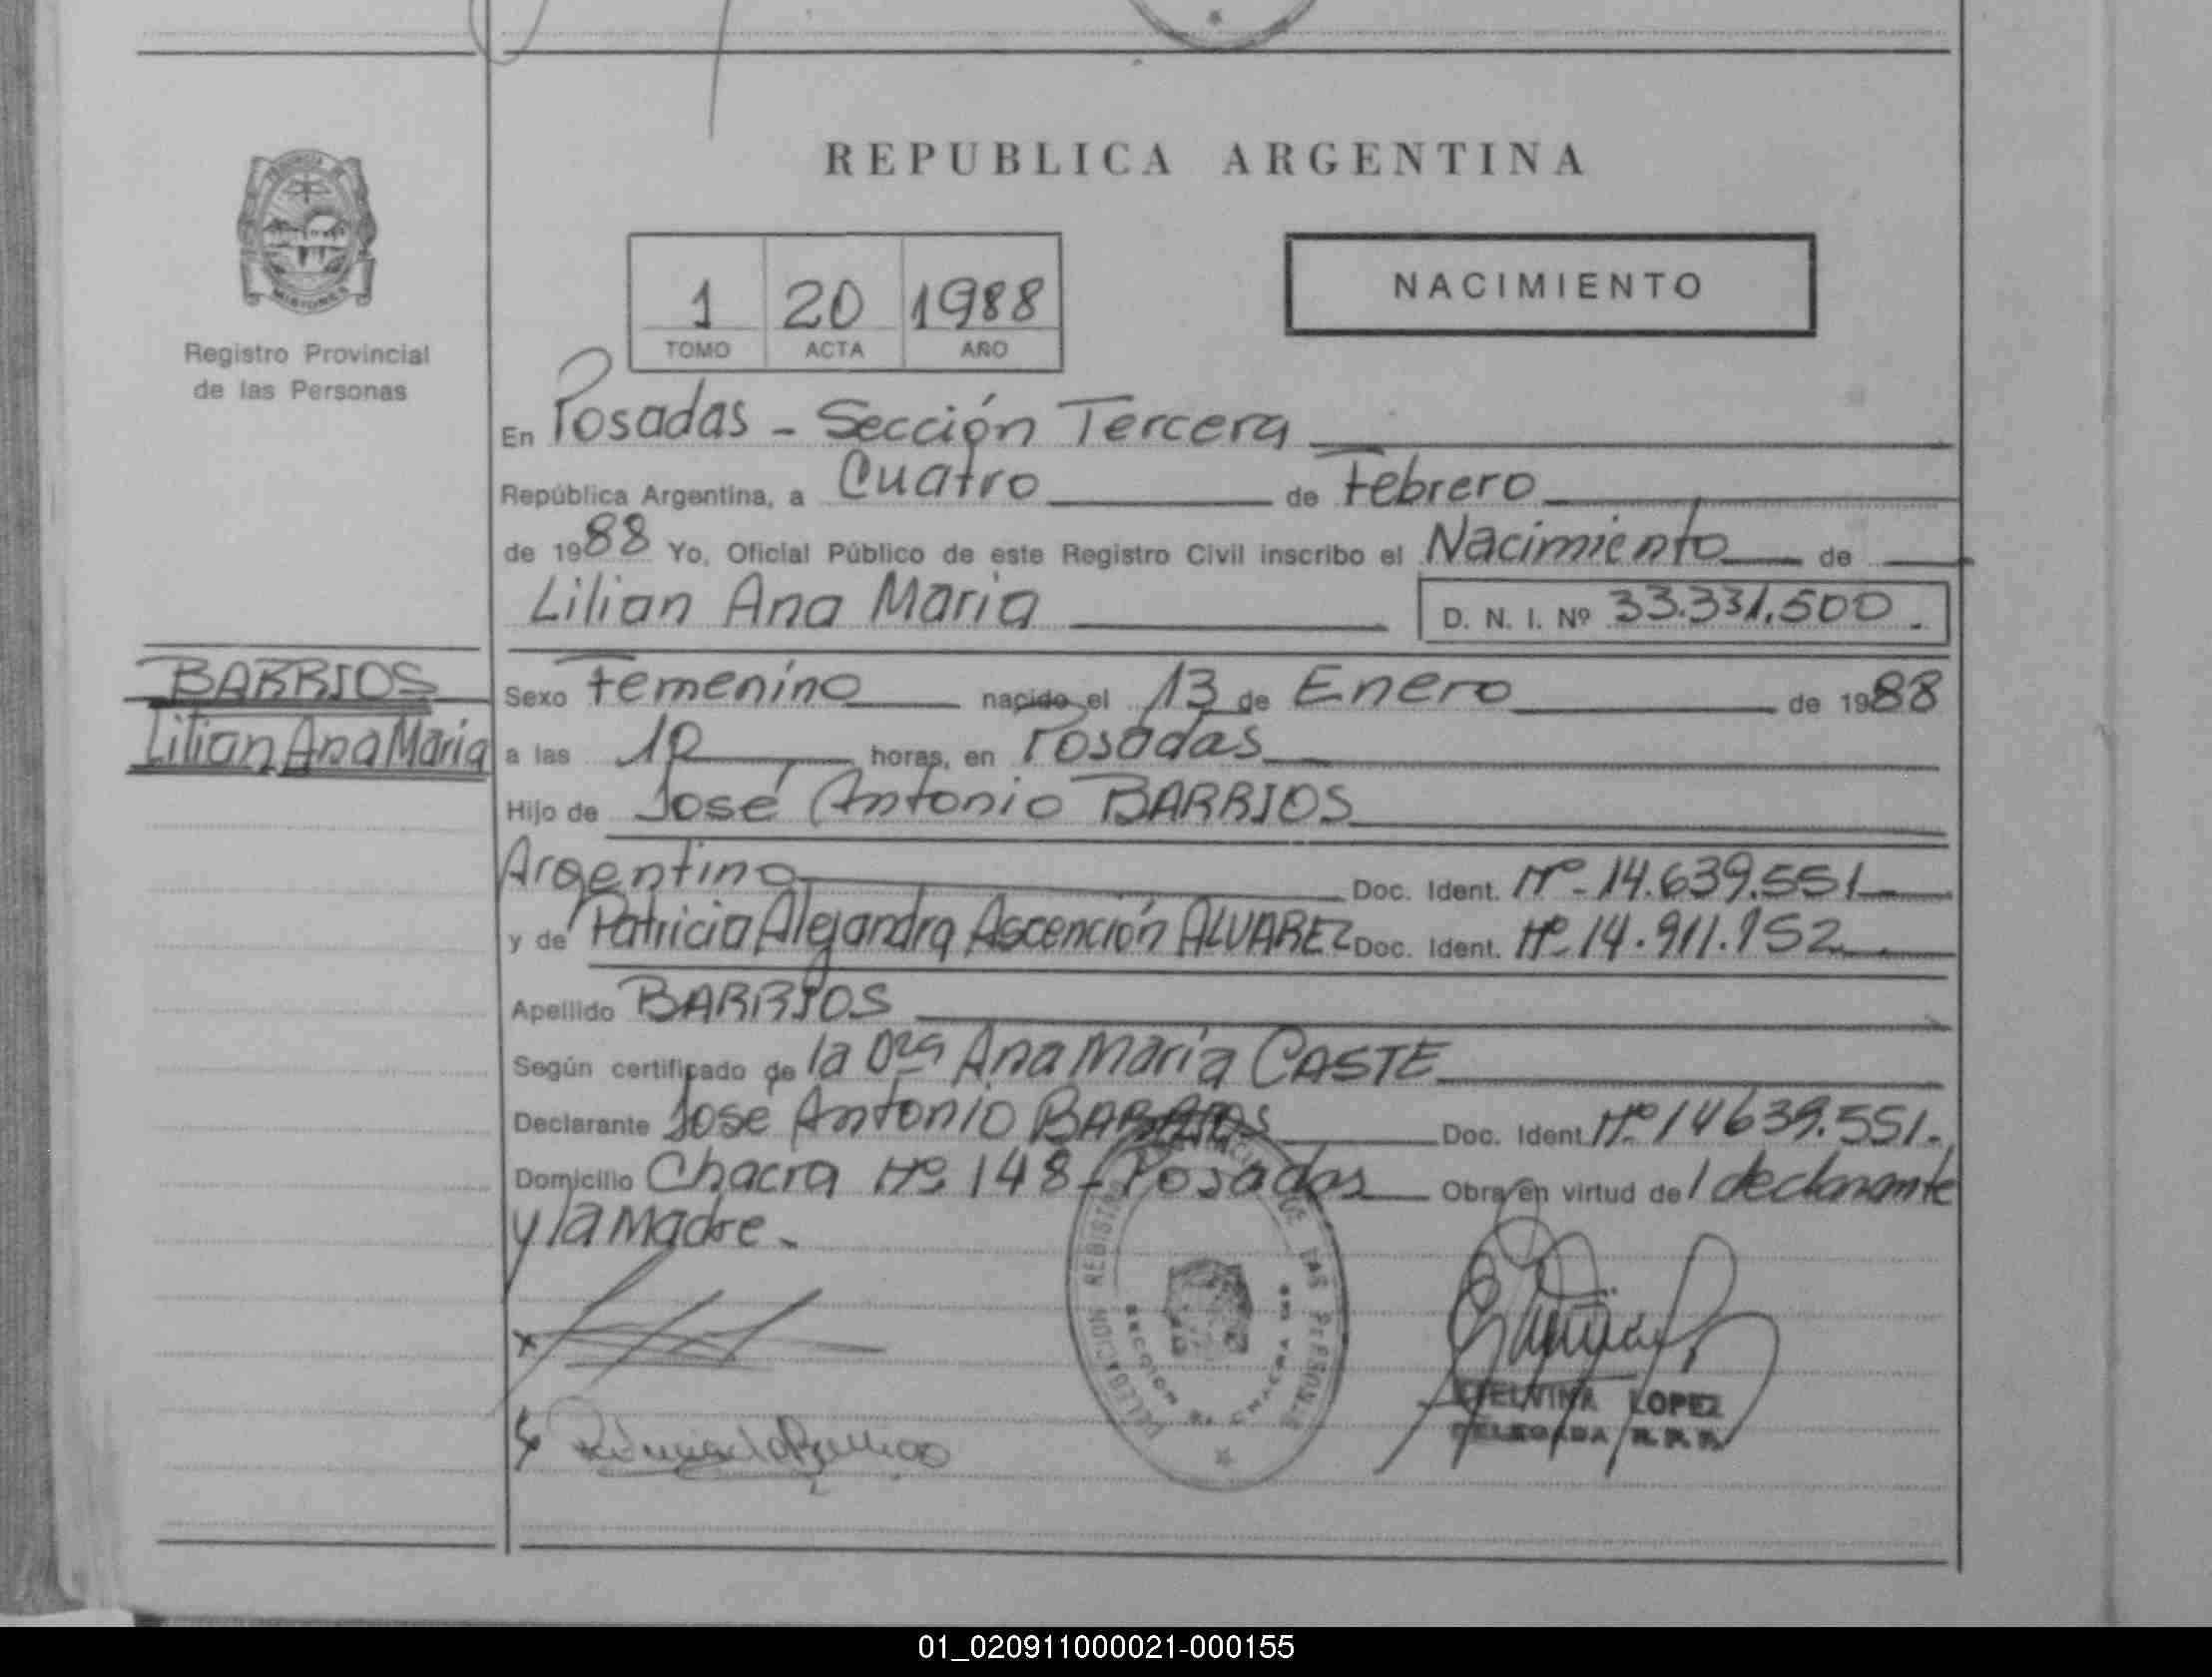 REPUBLICA ARGENTINA
MISIONES
Registro Provincial
de las Personas
1 20 1988
TOMO ACTA AÑO
NACIMIENTO
En Posadas - Sección Tercera
República Argentina, a Cuatro de Febrero
de 1988 Yo, Oficial Público de este Registro Civil inscribo el Nacimiento de
Lilian Ana Maria D. N. I. Nº 33.331.500.
BARRIOS
Lilian Ana Maria
Sexo Femenino nacido el 13 de Enero de 1988
a las 10 horas, en Posadas
Hijo de José Antonio BARRIOS
Argentino Doc. Ident. Nº 14.639.551
y de Patricia Alejandra Ascención ALVAREZ Doc. Ident. Nº 14.911.152
Apellido BARRIOS
Según certificado de la Dra Ana María CASTE
Declarante José Antonio BARRIOS Doc. Ident. Nº 14639.551.
Domicilio Chacra Nº 148 - Posadas Obra en virtud de l declarante
y la Madre.
DELEGACION REGISTRO PROVINCIAL DE LAS PERSONAS
SECCION
LOPEZ
DELEGADA R.P.P.
01_020911000021-000155